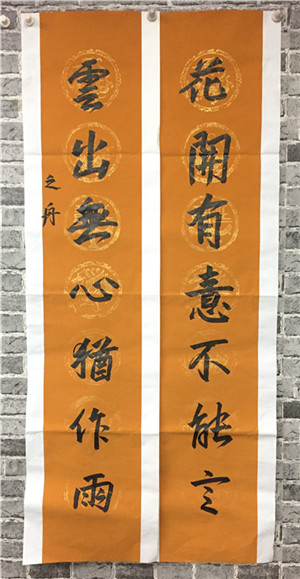 花開有意不能言
雲出無心猶作雨
之舟